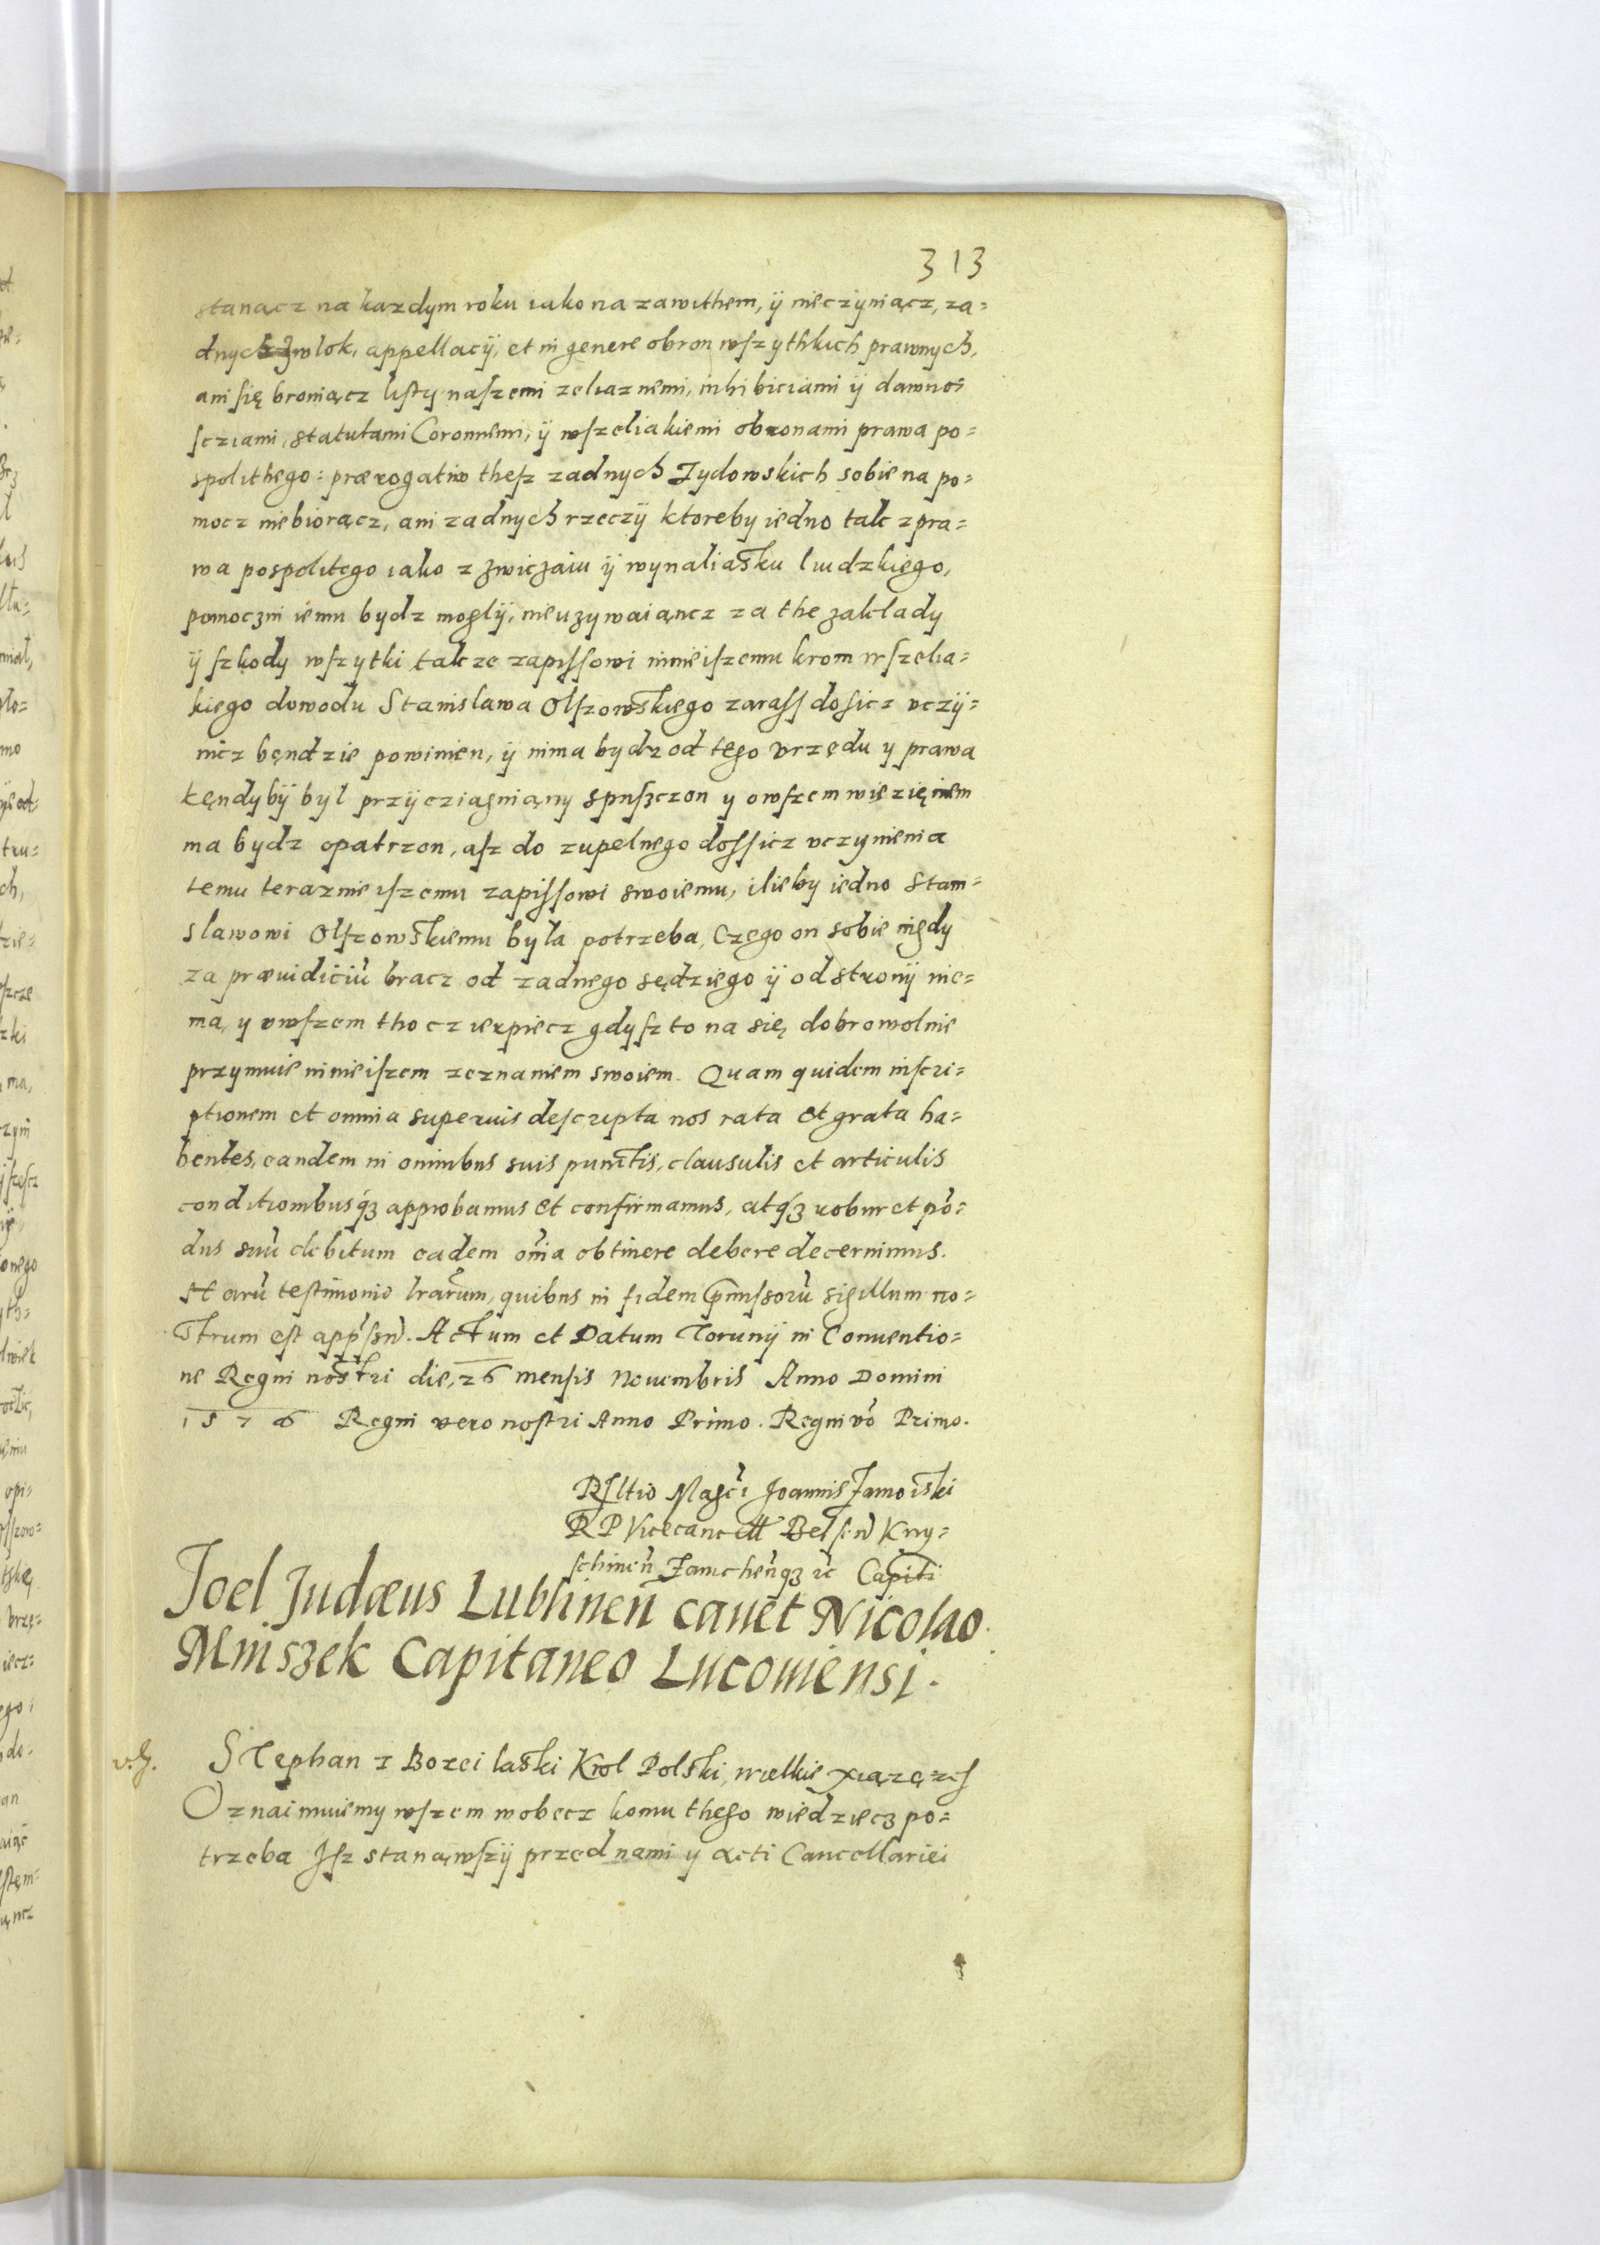 313
stanącz na kazdym roku iako na zawithem, ÿ nieczÿniącz, za=
dnych zwlok, appellacÿ, et in genere obron wſzythkich prawnych,
ani ſię broniącz liſty naſzemi zeliaznemi, inhibiciami ÿ dawnos
ſcziami, statutami Coronnemi, ÿ wſzeliakiemi obronami prawa po=
spolithego: prærogatiw theſz zadnych Zydowskich sobie na po=
mocz niebiorącz, ani zadnych rzeczÿ ktoreby iedno tak z pra=
wa pospolitego iako z zwiczaiu ÿ wynaliasku liudzkiego,
pomoczni iemu bydz moglÿ, nieuzywaiąncz za the zaklady
ÿ ſzkody wſzytki takze zapiſſowi ninieiſzemu krom wſzelia=
kiego dowodu Stanislawa Olſzowskiego zaraſſ doſicz vczÿ=
nicz będzie powinien, ÿ nima bydz od tego vrzędu y prawa
kęndybÿ byl przÿcziągniąny spuſzczon y owſzem wiezięniem
ma bydz opatrzon, aſz do zupelnego doſſicz vczynienia
temu teraznieiſzemu zapiſſowi swoiemu, ilieby iedno Stani=
slawowi Olſzowskiemu byla potrzeba, Czego on sobie nigdy
za præiudiciũ bracz od zadnego sędziego ÿ od stronÿ nie=
ma, y owſzem tho czierpiecz gdyſz to na się dobrowolnie
przymuie ninieiſzem zeznaniem swoiem. Quam quidem inſcri=
ptionem et omnia superius deſcripta nos rata et grata ha=
bentes, eandem in omnibus suis punctis, clausulis et articulis
conditionibusq́ʒ approbamus et confirmamus, atq́ʒ robur et põ=
dus suũ debitum eadem oĩa obtinere debere decernimus.
Harũ testimonio lrarum, quibus in fidem p̃miſsorũ sigillum no=
strum eſt app̃ſsũ. Actum et Datum Torunÿ in Conuentio=
ne Regni nostri die, 26 menſis Nouembris Anno Domini
1576 Regni vero noſtri Anno Primo. Regni võ Primo.
Rſltio Mag̃ci Joannis Zamoiski
R P Vicecancell Belſeñ Kny=
ſchineñ Zamcheñqʒ zc Capiti
Joel Judæus Lublineñ cauet Nicolao
Mniszek Capitaneo Lucouiensi.
Stephan z Bozei laski Krol Polski, wielkie xiązę zcſ
Oznaimuiemy wſzem wobecz komu thego wiedziecz po=
trzeba Jſz stanąwſzÿ przed nami y acti Cancellariei